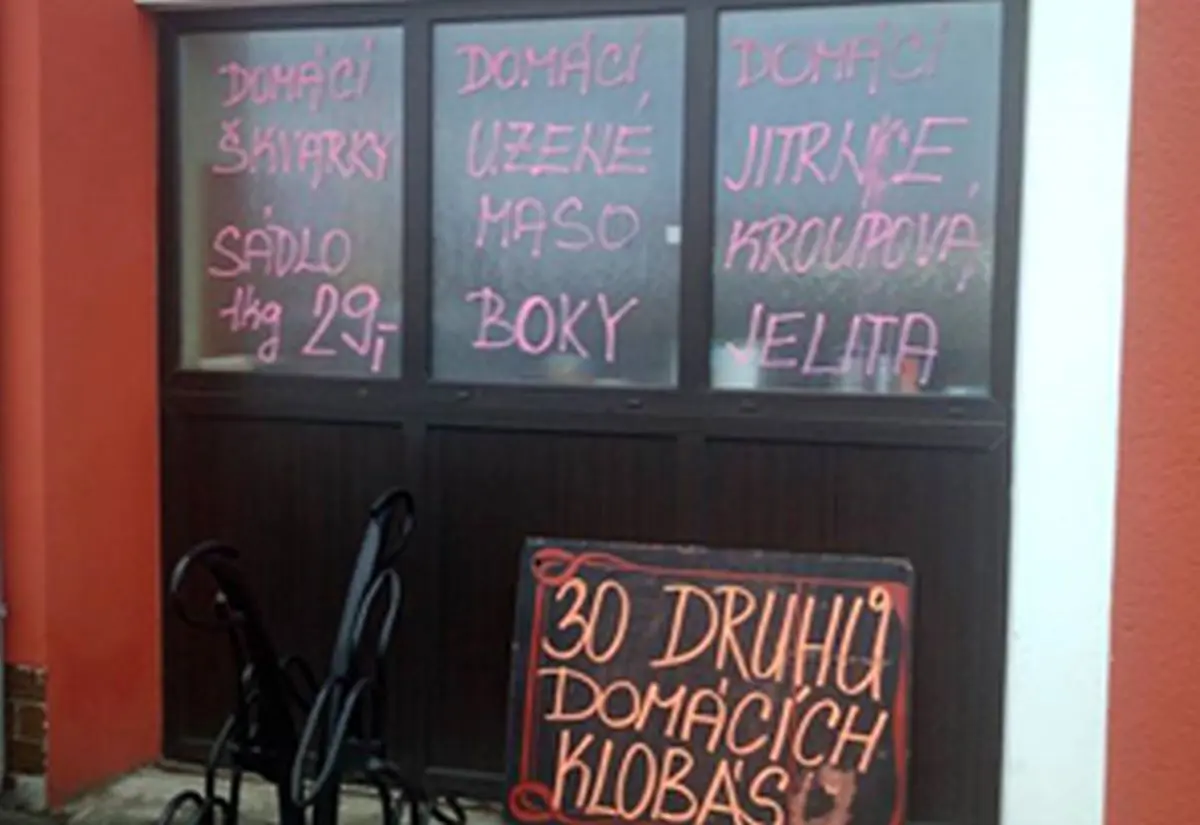 DOMÁCÍ
ŠKVARKY
SÁDLO
1kg 29,-
DOMÁCÍ
UZENÉ
MASO
BOKY
DOMÁCÍ
JITRNICE,
KROUPOVÁ
JELITA
30 DRUHŮ
DOMÁCÍCH
KLOBÁS